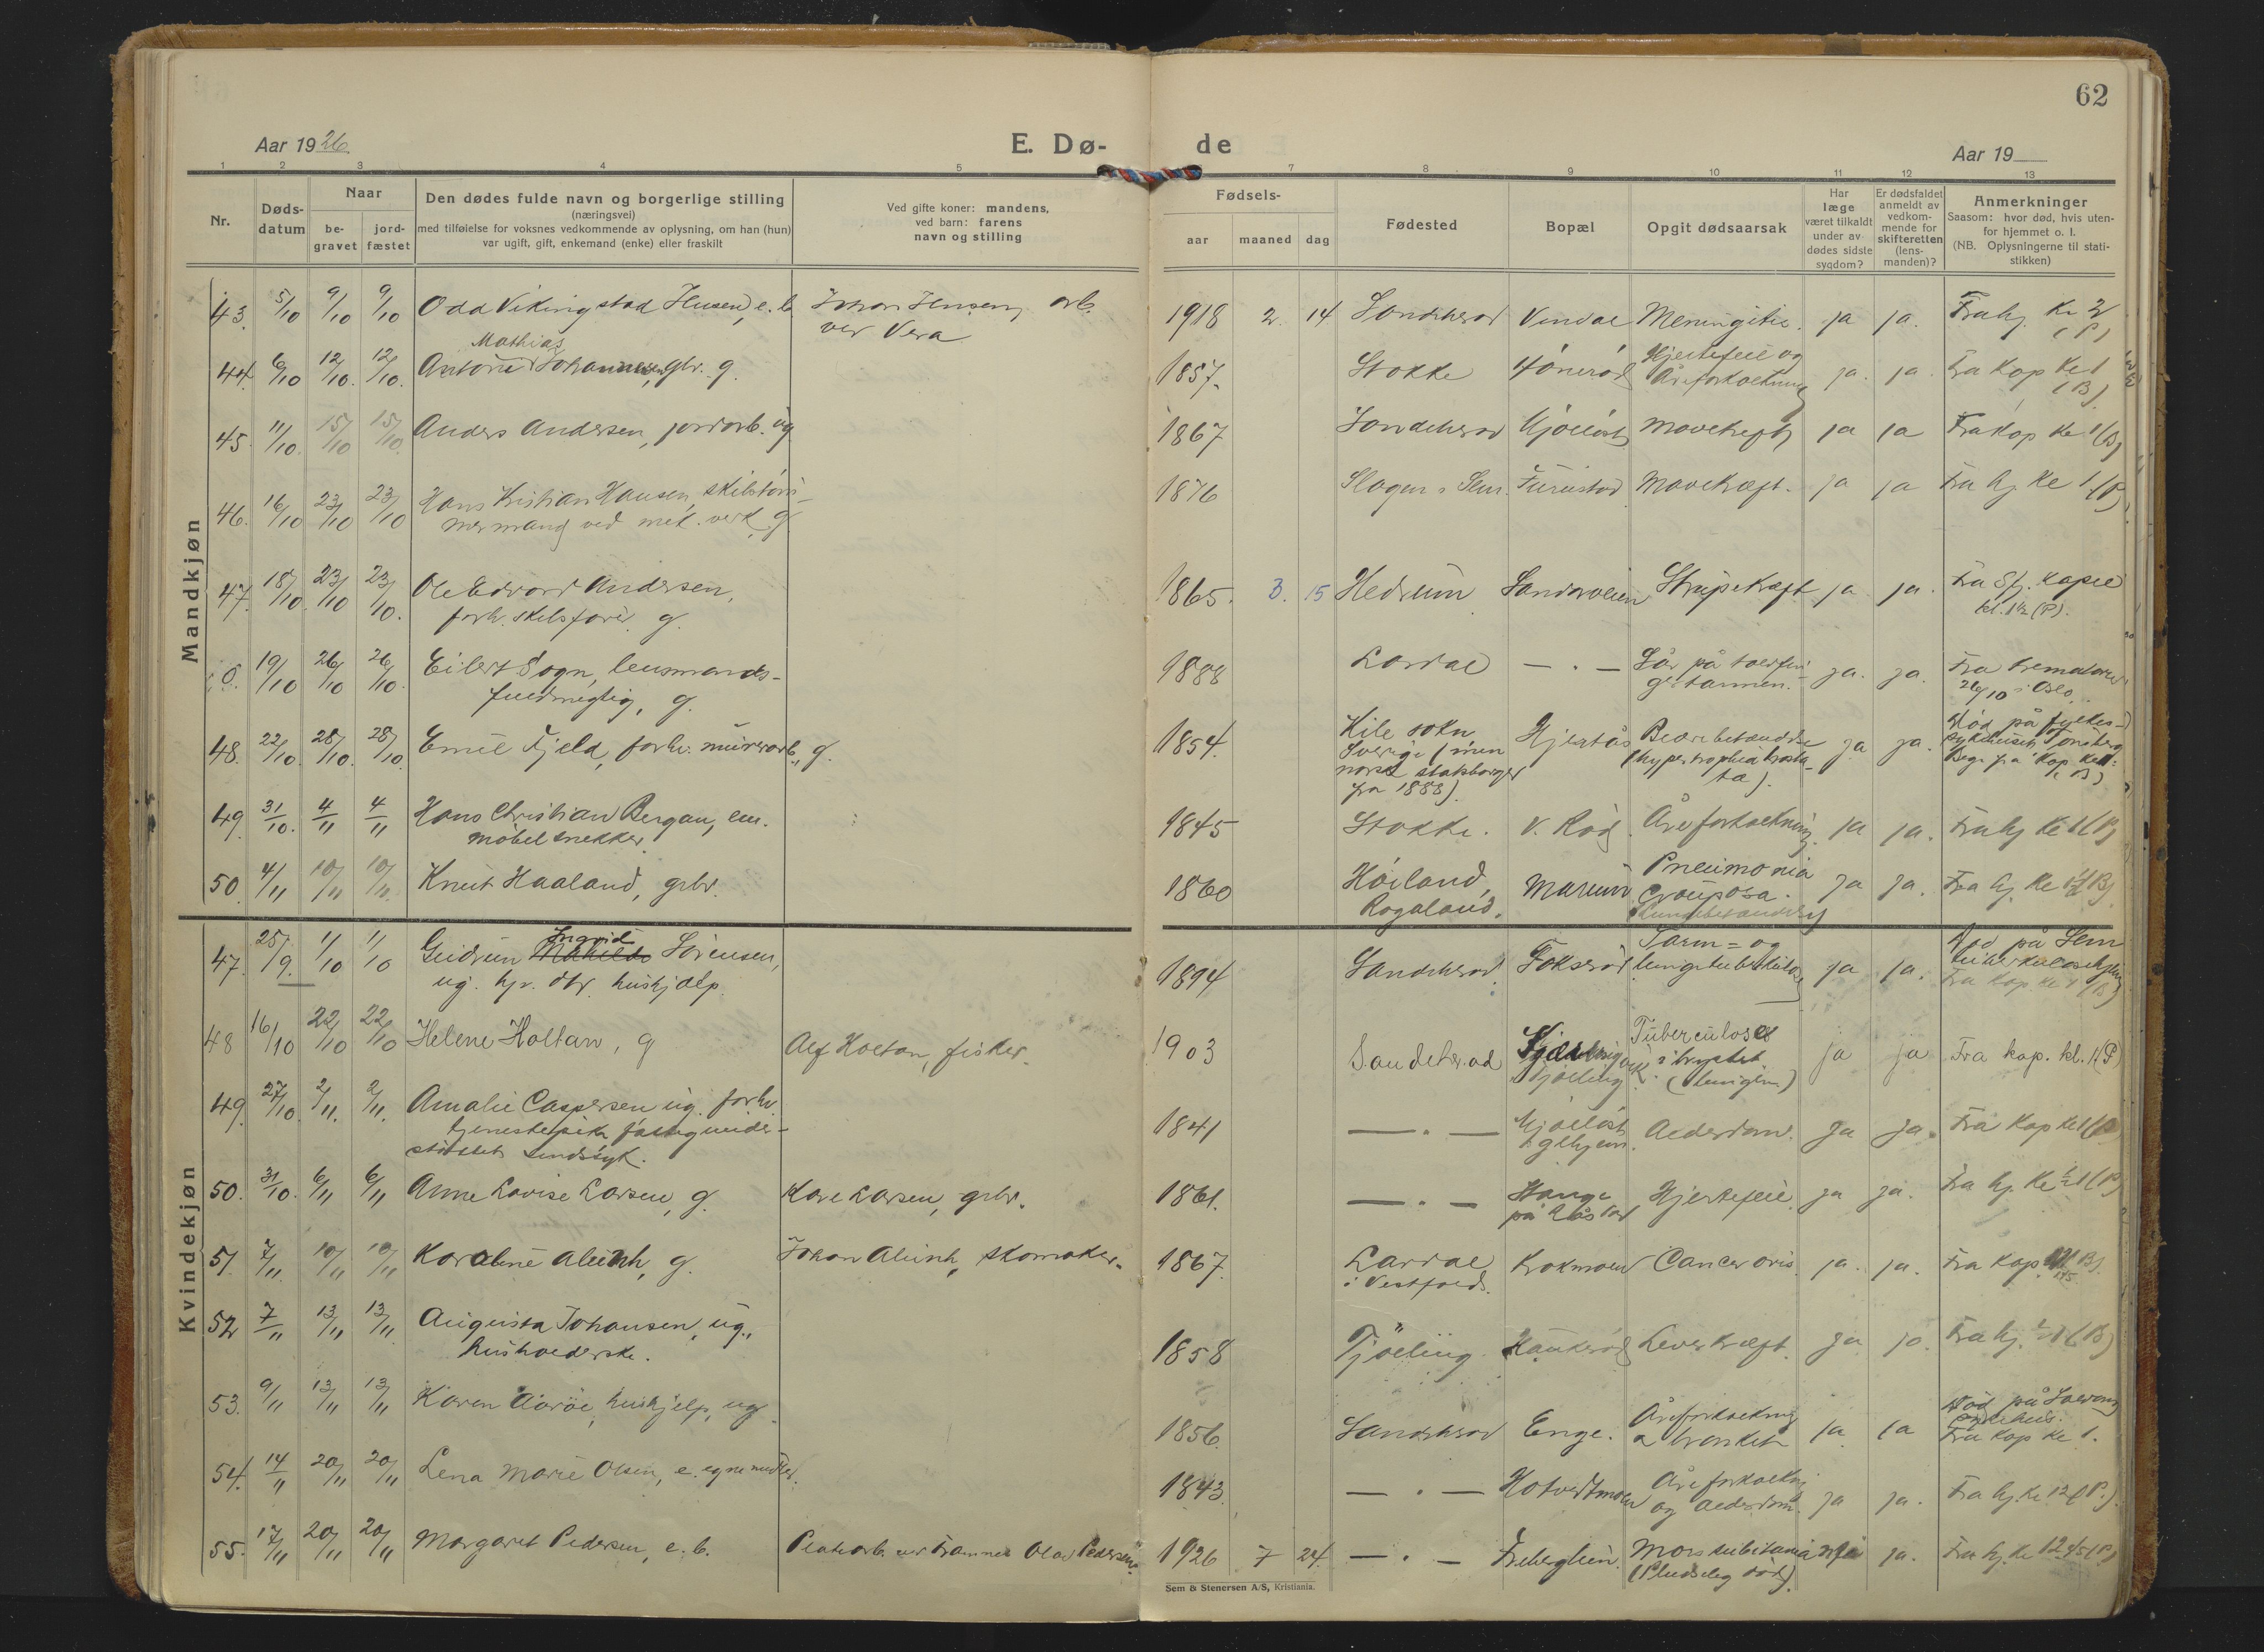 62
Aar 1926
E. Dø-
de
Aar 19
1 2 3 4 5 7 8 9 10 11 12 13
Nr.
Døds-
datum
Naar
be-
gravet
jord-
fæstet
Den dødes fulde navn og borgerlige stilling
(næringsvei)
med tilføielse for voksnes vedkommende av oplysning, om han (hun)
var ugift, gift, enkemand (enke) eller fraskilt
Ved gifte koner: mandens,
ved barn: farens
navn og stilling
Fødsels-
aar maaned dag
Fødested
Bopæl
Opgit dødsaarsak
Har
læge
været tilkaldt
under av-
dødes sidste
sygdom?
Er dødsfaldet
anmeldt av
vedkom-
mende for
skifteretten
(lens-
manden)?
Anmerkninger
Saasom: hvor død, hvis uten-
for hjemmet o. l.
(NB. Oplysningerne til stati-
stikken)
Mandkjøn
43. 5/10 9/10 9/10 Odd Vikingstad e. b. Johan arb.
ved Vera
1918 2. 14 Meningitis. ja ja.
Mathias
44. 6/10 12/10. 12/10. Johannesen, gbr. g.
1857. Stokke Hjertefeil og
Åreforkalkning ja. ja Fra kap kl 1
(B)
45. 11/10. 15/10 15/10. Anders Andersen, jordarb. ug
1867 Mavekreft ja ja Fra kap kl 1 (B)
46. 16/10 23/10 23/10 Hans Kristian Hansen, skibstøm-
mermand ved mek. verk, g
1876 Slagen i Sem. Furustad Mavekræft. ja ja Fra hj kl 1 (P)
47. 18/10. 23/10 23/10. Ole Edvard Andersen,
forh. skibsfører. g.
1865. 3. 15 Hedrum Strupekræft ja ja. Fra Sfj. kapel
kl. 1½ (P).
19/10 26/10 26/10. Eilert Sogn, lensmands-
fuldmegtig, g.
1888 Lardal — . — Sår på tolvfin-
gertarmen. ja. ja. Fra krematoriet
26/10 i Oslo
48. 22/10. 28/10. 28/10. Emil Fjeld, forhv. murerarb., g.
1854. Kile sokn
Sverige (men
norsk statsborger
fra 1888). Hjertås Blærebetændelse
(hypertrophia prosta-
ta). ja ja. Død på fylkes-
sykehuset i Tønsberg
49. 31/10. 4/11 4/11 Hans Christian Bergan, em.
møbelsnekker
1845 Stokke. V. Rød Åreforkalkning ja ja. Fra hj kl 1 (B)
50. 4/11 10/11 10/11. Knut Haaland, gbr.
1860 Høiland,
Rogaland. Marum Pneumonia
crouposa. ja ja. Fra hj. kl
Kvindekjøn
47. 25/9. 1/10 1/10 Gudrun Ingrid Sørensen,
ug. hj. dtr. hushjælp.
1894 Fokserød Tarm- og
lungetuberkulose ja ja. Død på Sem
tuberkulosehjem
Fra kap. kl 1 (B)
48 16/10 22/10 22/10 Helene Holtan, g Alf Holtan, fisker.
1903 Sandeherad Tjølling Tuberculose
i brystet.
(lungen) ja ja Fra kap. kl. 1 (P)
49. 27/10. 2/11. 2/11. Amalie Caspersen ug. forhv
tjenestepike fattigunder-
støttet sindsyk.
1841 — . — Alderdom. ja ja. Fra kap kl 1
50. 31/10. 6/11 6/11 Anne Lovise Larsen, g. Larsen, gbr.
1861. — . — Hauge
på Råstad Hjertefeil. ja ja. Fra hj. kl
51. 7/11 10/11 10/11 g. Johan skomaker.
1867. Lardal
i Vestfold. Krokmoen Cancer oris. ja. ja. Fra kap
52 7/11 13/11 13/11 Augusta Johansen, ug.,
husholderske.
1858 Tjølling Leverkræft. ja ja. Fra hj.
53. 9/11 13/11 13/11 Karen hushjelp, ug
1856. Enge. Åreforkalkning
ja ja Død på
Fra kap kl 1.
54. 14/11 20/11 20/11 Lena Marie Olsen, e. egne midler.
1843. — . — Hotvedtmoen Åreforkalkning
og alderdom. ja ja. Fra hj. kl. 12 (P.)
55. 17/11 20/11 20/11 Margaret Pedersen, e. b. Platearb. ved Framnes Olav Pedersen.
1926 7 24. — . — Mors subitanea
(Pludselig død). nei ja. Fra hj. kl 12.45 (P)
Sem & Stenersen A/S, Kristiania.